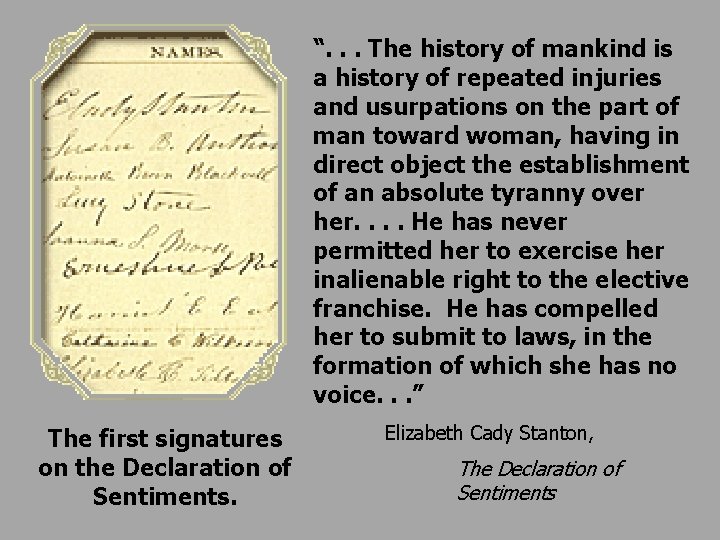 NAMES.
E Cady Stanton
Susan B. Anthon
Antoinette Brown Blackwell
Lucy Stone
Joanna S. Morse
Ernestine L Ro
Harriot E E
Catharine C Wilkeson
Elizabeth
The first signatures
on the Declaration of
Sentiments.
“. . . The history of mankind is
a history of repeated injuries
and usurpations on the part of
man toward woman, having in
direct object the establishment
of an absolute tyranny over
her. . . . He has never
permitted her to exercise her
inalienable right to the elective
franchise. He has compelled
her to submit to laws, in the
formation of which she has no
voice. . .”
Elizabeth Cady Stanton,
The Declaration of
Sentiments